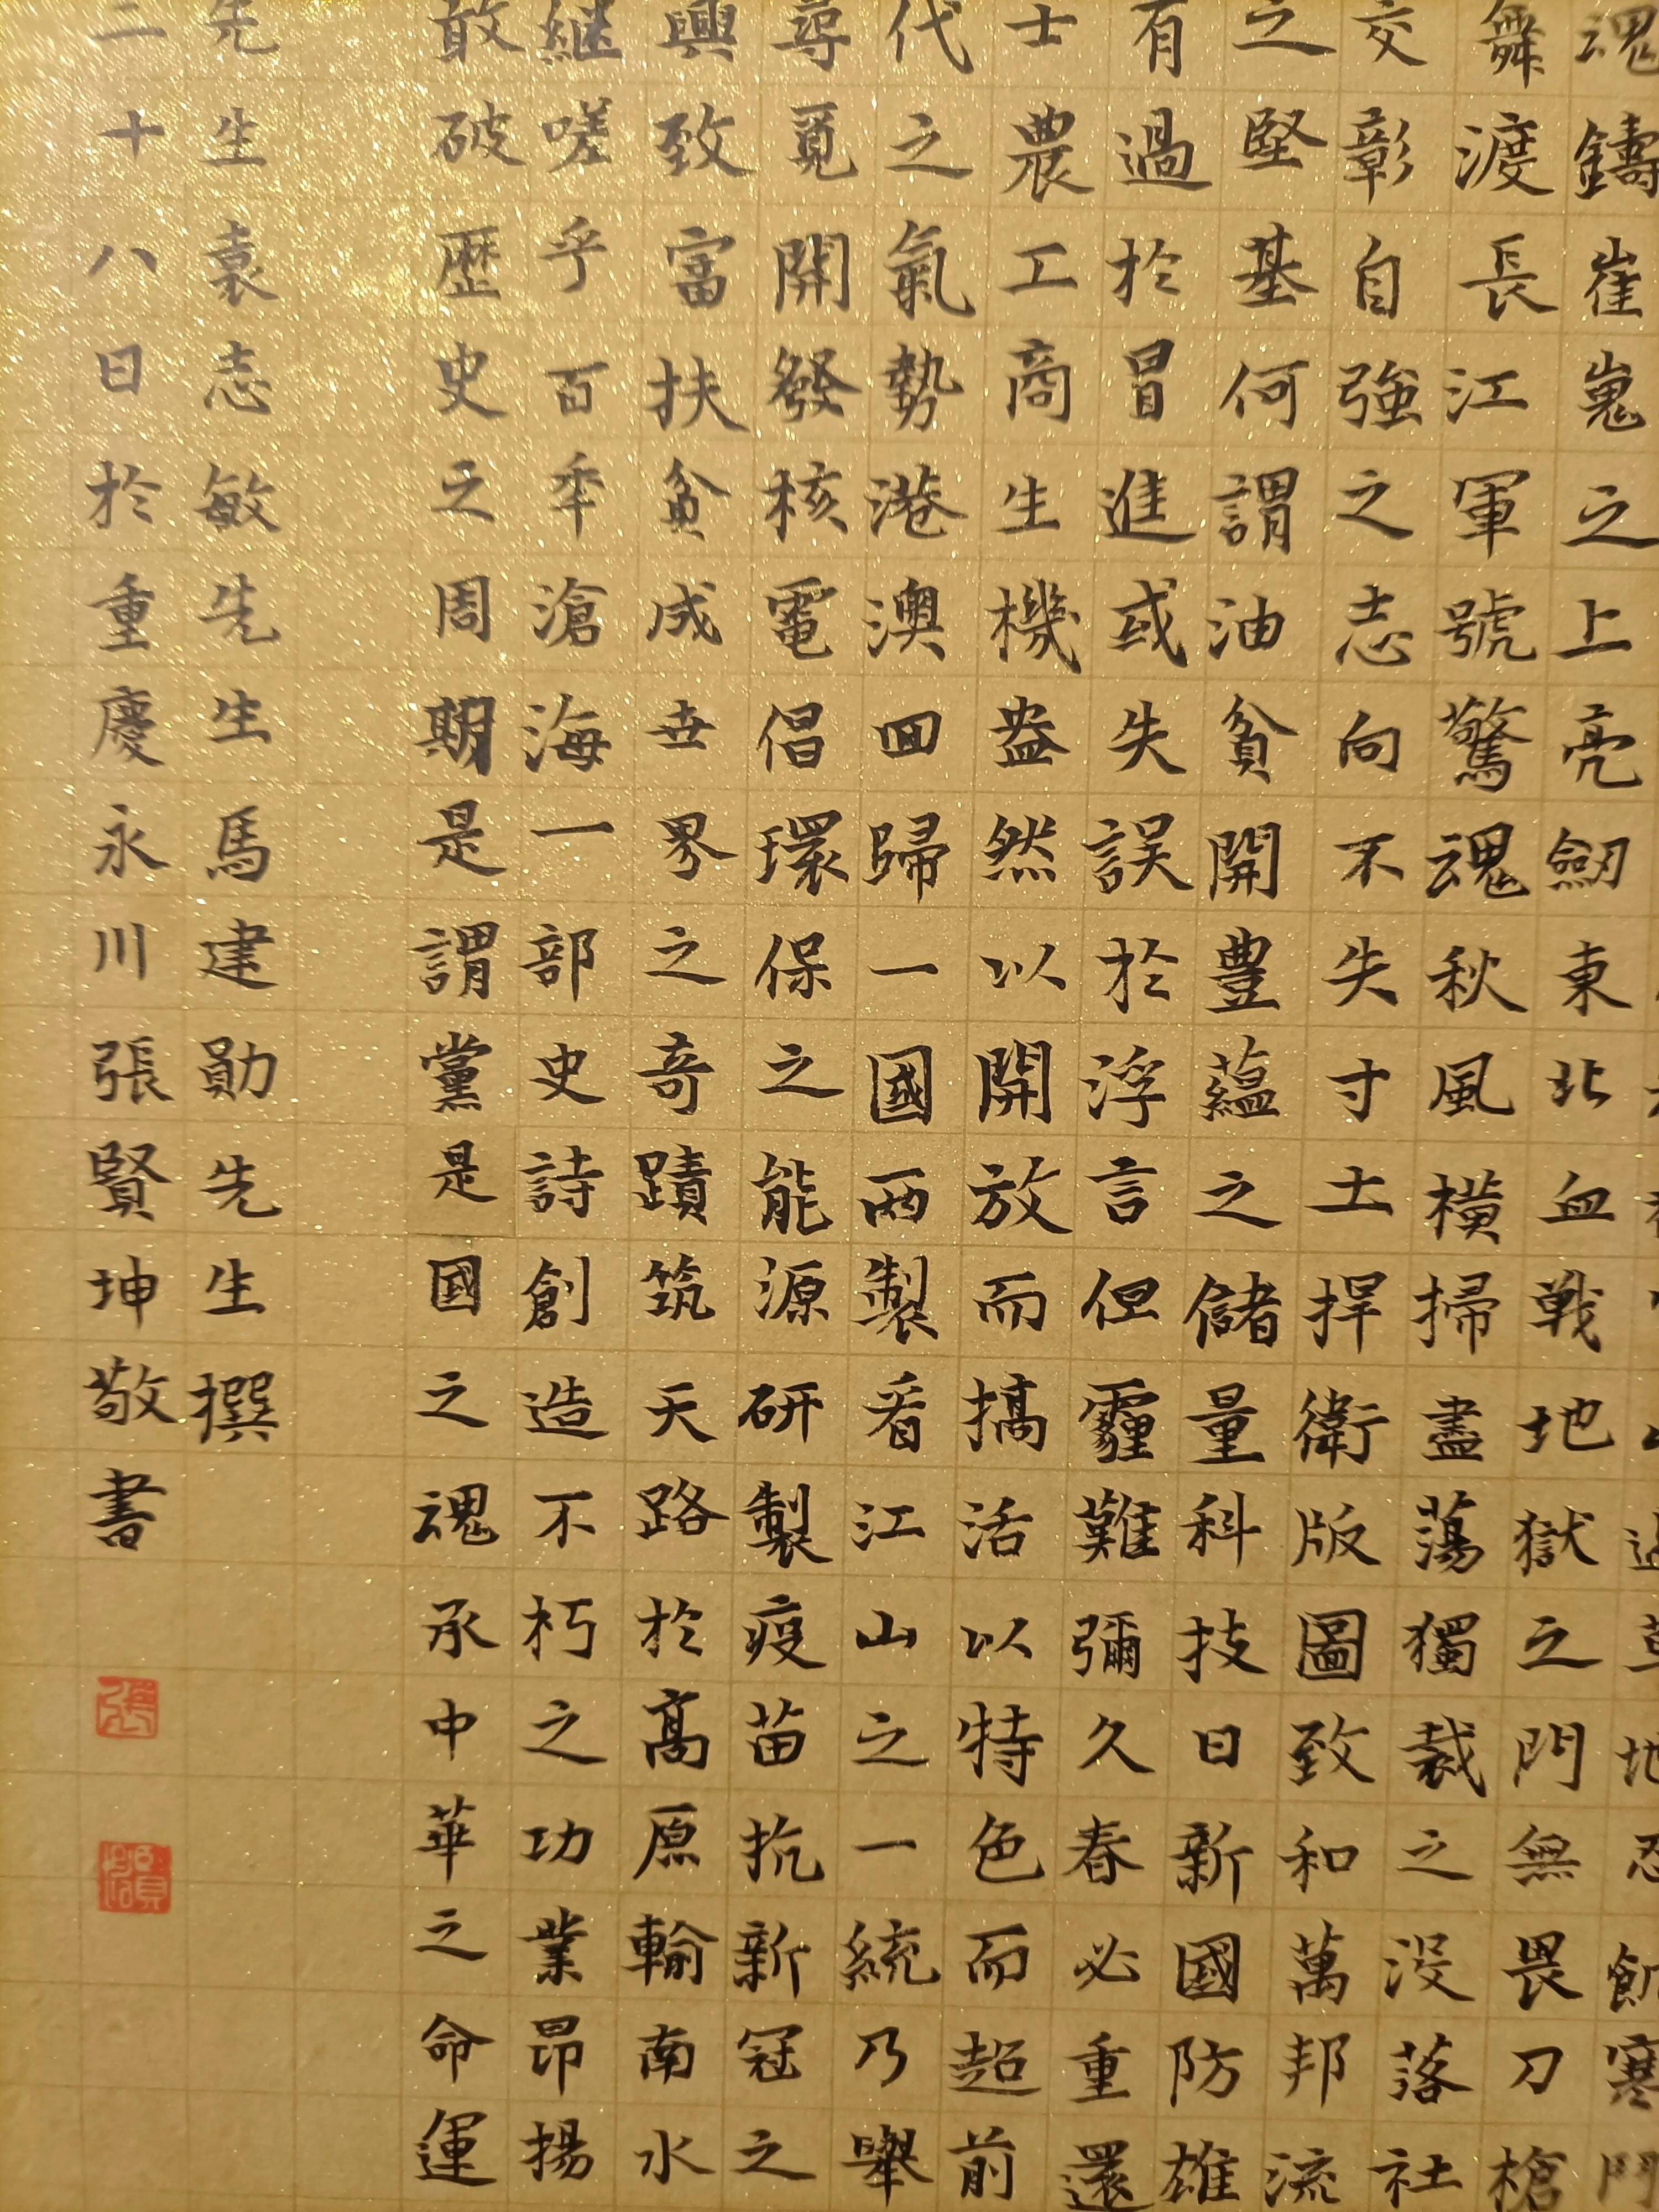 魂鑄崔嵬之上亮劍東北血戰地獄之門無畏刀槍
舞渡長江軍號驚魂秋風橫掃盡蕩獨裁之没落社
交彰自強之志向不失寸土捍衛版圖致和萬邦流
之堅基何謂油貧開豊蘊之儲量科技日新國防雄
有過於冒進或失誤於浮言但霾難彌久春必重還
士農工商生機盎然以開放而搞活以特色而超前
代之氣勢港澳回歸一國兩製看江山之一統乃舉
尋覓開發核電倡環保之能源研製疫苗抗新冠之
興致富扶貧成世界之奇蹟筑天路於高原輸南水
繼嗟乎百年滄海一部史詩創造不朽之功業昂揚
敢破歷史之周期是謂黨是國之魂承中華之命運
先生袁志敏先生馬建勛先生撰
二十八日於重慶永川張賢坤敬書